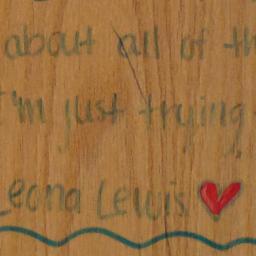 about all of th
I'm just trying
Leona Lewis